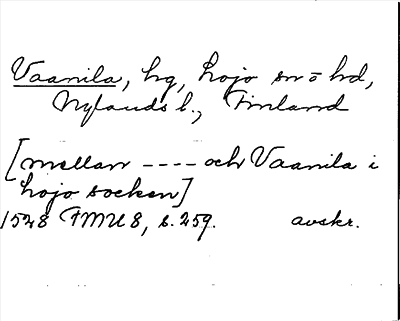 Vaanila, hg, Lojo sn o hd,
Nylands l., Finland
[mellan ---- och Vaanila i
Lojo socken]
1528 FMU 8, s. 259. avskr.